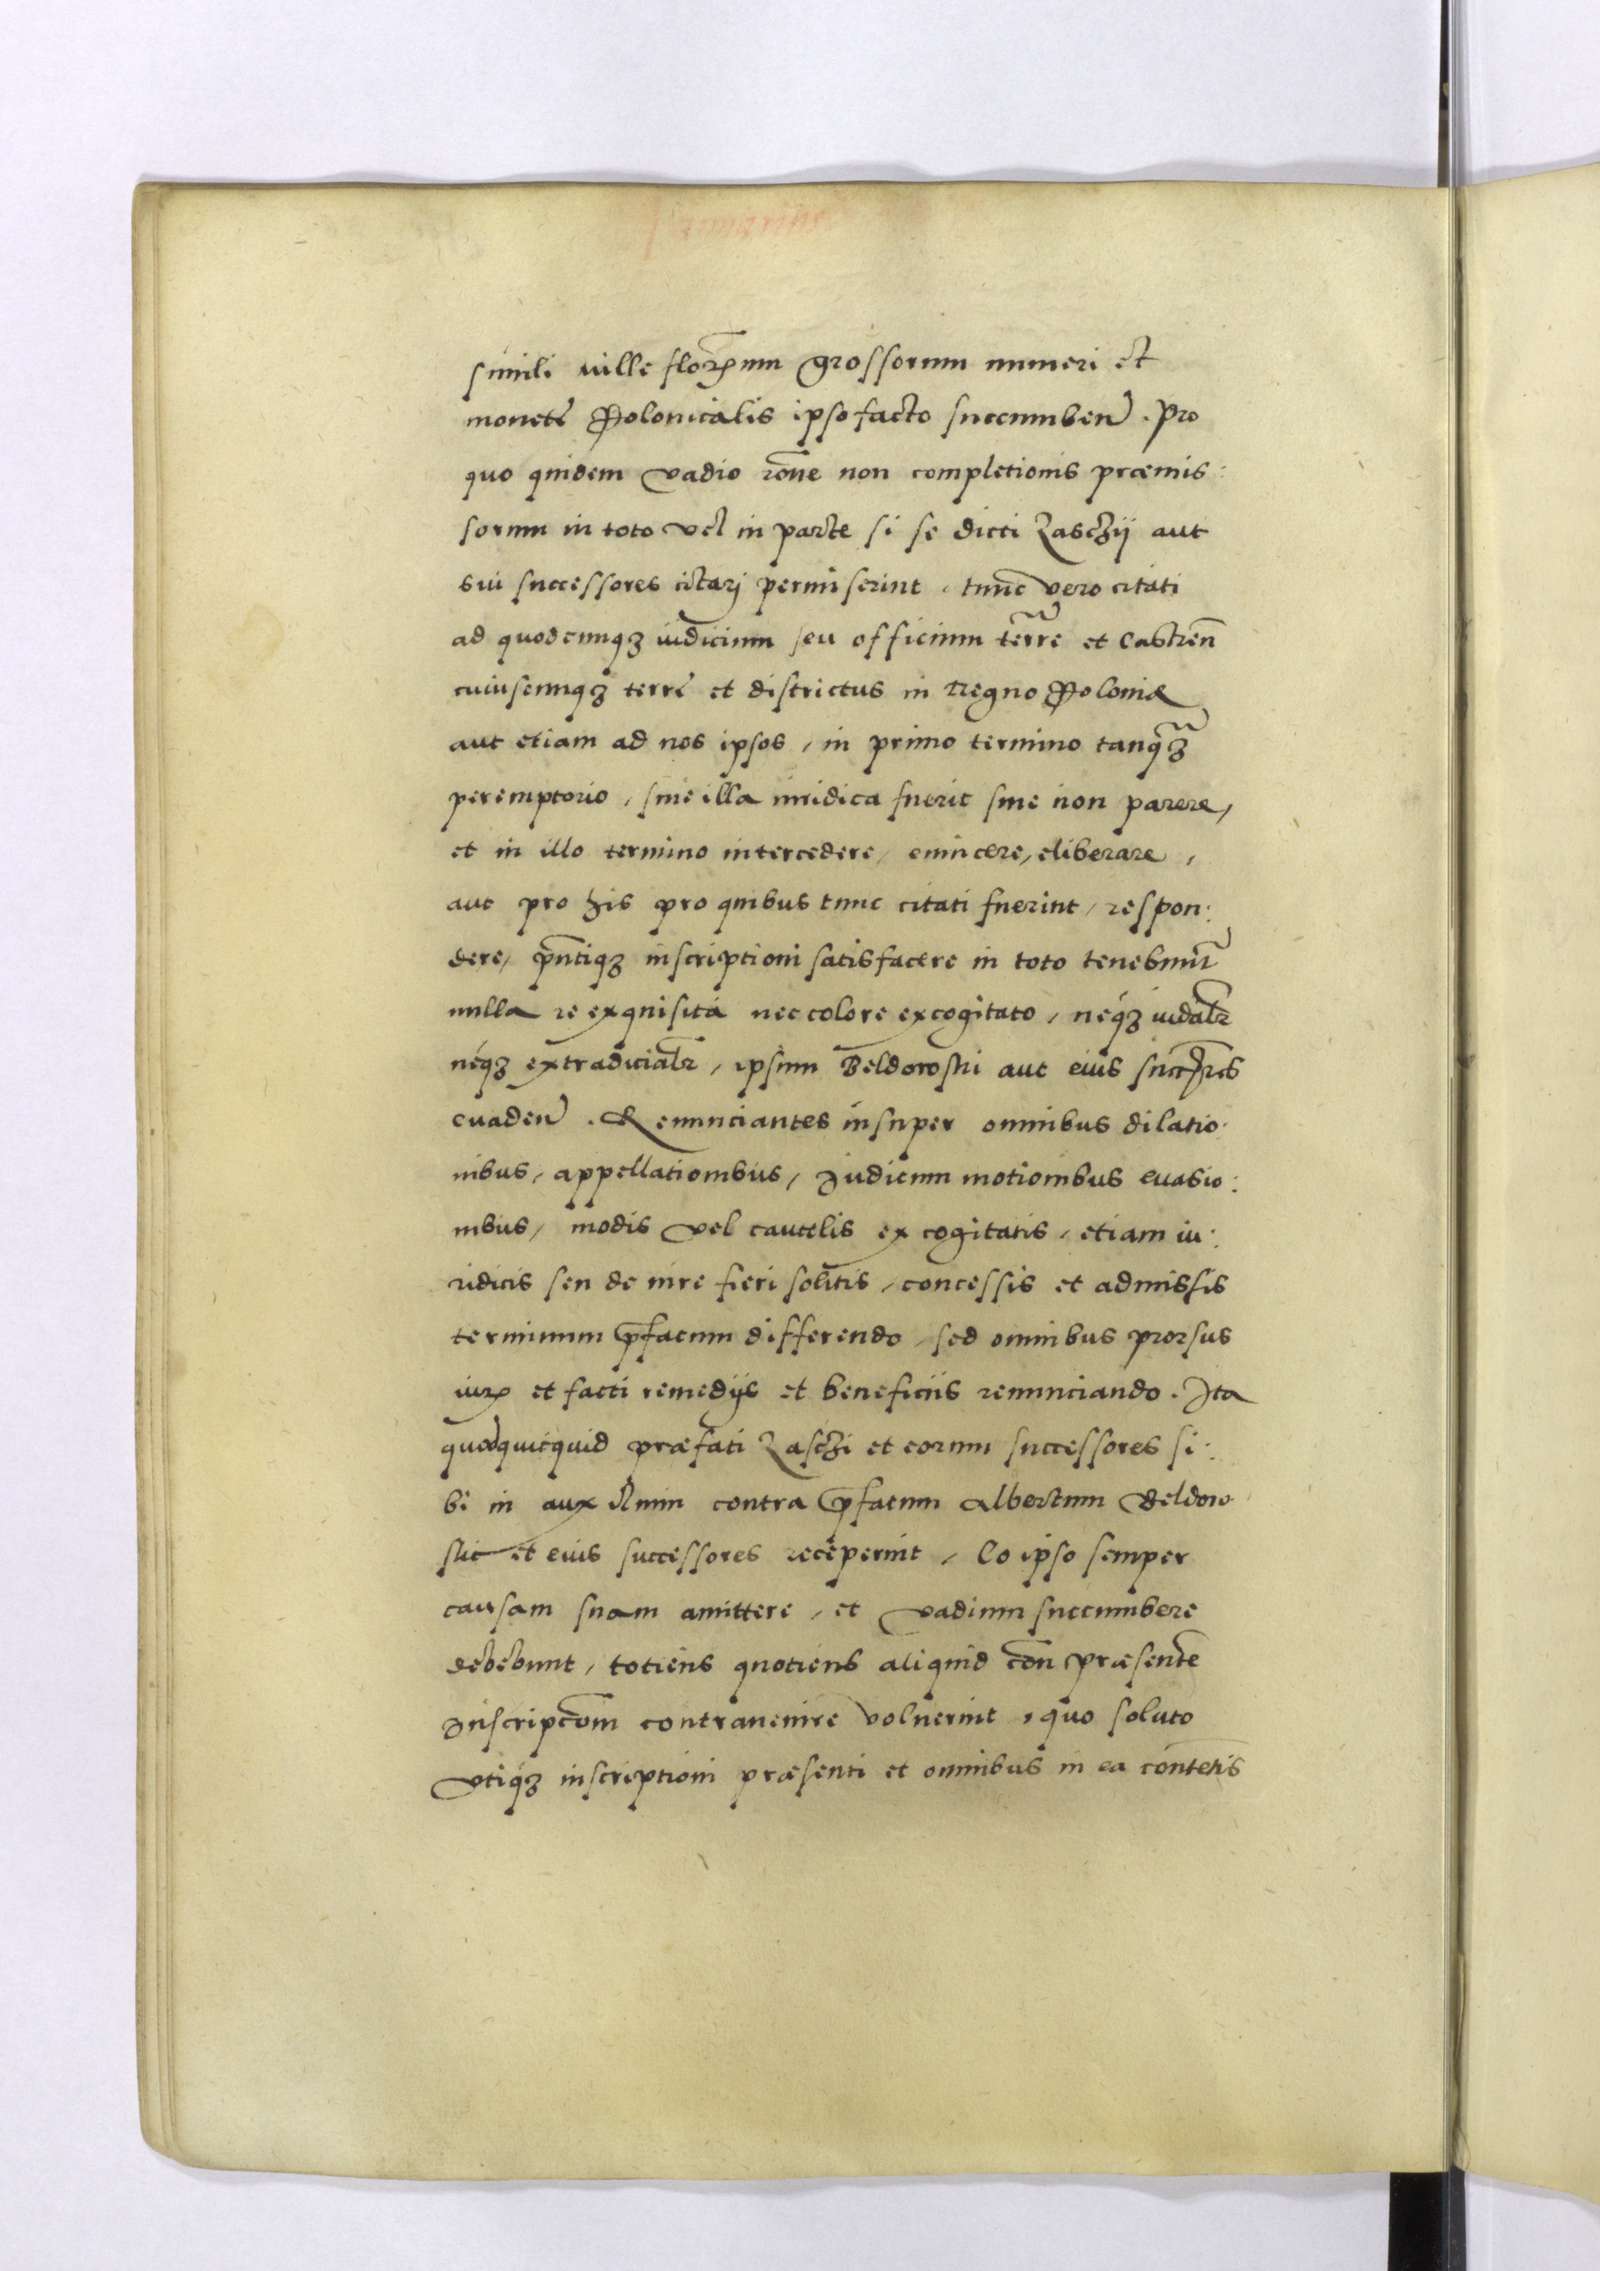 simili mille florenum grossorum numeri et
monetę Polonicalis ipso facto succumbent̃ . Pro
quo quidem vadio rõne non completionis præmis:
sorum in toto vel in parte si se dicti Zaschÿ aut
sui successores citarj permiserint , tunc vero citati
ad quodcunqꝫ iudicium seu officium terrẽ et Castreñ
cuiuscunqꝫ terrę et districtus in Regno Poloniæ
aut etiam ad nos ipsos , in primo termino tanqꝫ
peremptorio , siue illa iuridica fuerit siue non parere ,
et in illo termino intercedere , euincere , eliberare ,
aut pro his pro quibus tunc citati fuerint , respon:
dere , pñtiqꝫ inscriptioni satisfacere in toto tenebunt̃
nulla re exquisita nec colore excogitato , neqꝫ iudalr̃
neqꝫ extradicialr̃ , ipsum Beldowski aut eius succres
euadent̃ . Renunciantes insuper omnibus dilatio:
nibus , appellationibus , Iudicum motionibus euasio:
nibus , modis vel cautelis excogitatis , etiam iu:
ridicis seu de iure fieri solitis , concessis et admissis
terminum p̃fatum differendo , sed omnibus prorsus
iurꝭ et facti remedÿs et beneficiis renunciando . Ita
quod quicquid præfati Zaschi et eorum successores si:
bi in aux contra p̃fatum Albertum Beldow
ski et eius successores receperint , Eo ipso semper
causam suam amittere , et vadium succumbere
debebunt , totiens quotiens aliquid coñ præsentẽ
Inscripcõni contrauenire voluerint , quo soluto
vtiqꝫ inscriptioni præsenti et omnibus in ea contẽtis